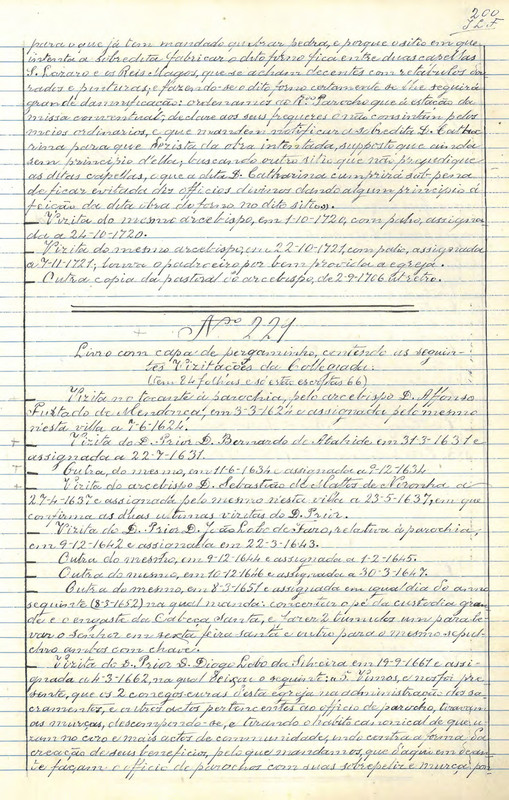 200
para o que já tem mandado quebrar pedra, e porque o sitio em que
intenta a sobredita fabricar o dito forno fica entre duas capellas
S. Lazaro e os Reis Magos, que se acham decentes com retabulos dou
rados e pinturas; e fazendo-se o dito forno certamente se lhe seguirá
grande damnificação: ordenamos ao Rdo Parocho que á estação da
missa conventual, declare aos seus freguezes o não consintam pelos
meios ordinarios, e que mandem notificar a sobredita D. Catha
rina para que desista da obra intentada, supposto que ainda
sem principio d'ella, buscando outro sitio que não prejudique
as ditas capellas, o que a dita D. Catharina cumprirá sub pena
de ficar evitada dos officios divinos dando algum principio á
feição da dita obra do forno no dito sitio».
— Visita do mesmo arcebispo, em 1-10-1720, com palio, assigna
da a 24-10-1720.
— Visita do mesmo arcebispo, em 22-10-1721, com palio, assignada
a 7-11-1721; louva o padroeiro por bem provida a egreja.
— Outra copia da pastoral do arcebispo, de 2-9-1706 ut retro.
Nº 221
Livro com capa de pergaminho, contendo as seguin-
tes Visitações da Collegiada:
(Tem 84 folhas e só estão escriptas 66)
— Visita no tocante á parochia, pelo arcebispo D. Affonso
Furtado de Mendonça, em 3-3-1624 e assignada pelo mesmo
nesta villa a 7-6-1624.
— Visita do D. Prior D. Bernardo de Atahide em 31-3-1631 e
assignada a 22-7-1631.
— Outra, do mesmo, em 11-6-1634 e assignada a 9-12-1634
— Visita do arcebispo D. Sebastião de Mattos de Noronha a
27-4-1637 e assignada pelo mesmo nesta villa a 23-5-1637, em que
confirma as duas ultimas visitas do D. Prior.
— Visita do D. Prior D. João Lobo de Faro, relativa á parochia,
em 9-12-1642 e assignada em 22-3-1643.
— Outra do mesmo, em 9-12-1644 e assignada a 1-2-1645.
— Outra do mesmo, em 10-12-1646 e assignada a 30-3-1647.
— Outra do mesmo, em 8-3-1651 e assignada em igual dia do anno
seguinte (8-3-1652) na qual manda: concertar o pé da custodia gran
de e o engaste da Cabeça Santa, e fazer 2 tumulos um para le
var o Senhor em sexta feira santa e outro para o mesmo sepul
chro ambos com chave.
— Visita do D. Prior D. Diogo Lobo da Silveira em 19-9-1661 e assi-
gnada a 4-3-1662, na qual deixa o seguinte: «5. Vimos, e nos foi pre
sente, que os 2 conegos curas desta egreja na administração dos sa-
cramentos, e outros actos pertencentes ao officio de parocho, tiravam
as murças, descompondo-se, e tirando o habito canonical de que u-
zam no coro e mais actos de communidade, indo contra a forma da
creação de seus beneficios, pelo que mandamos, que d'aqui em dean-
te façam o officio de parochos com suas sobrepelize e murça, por